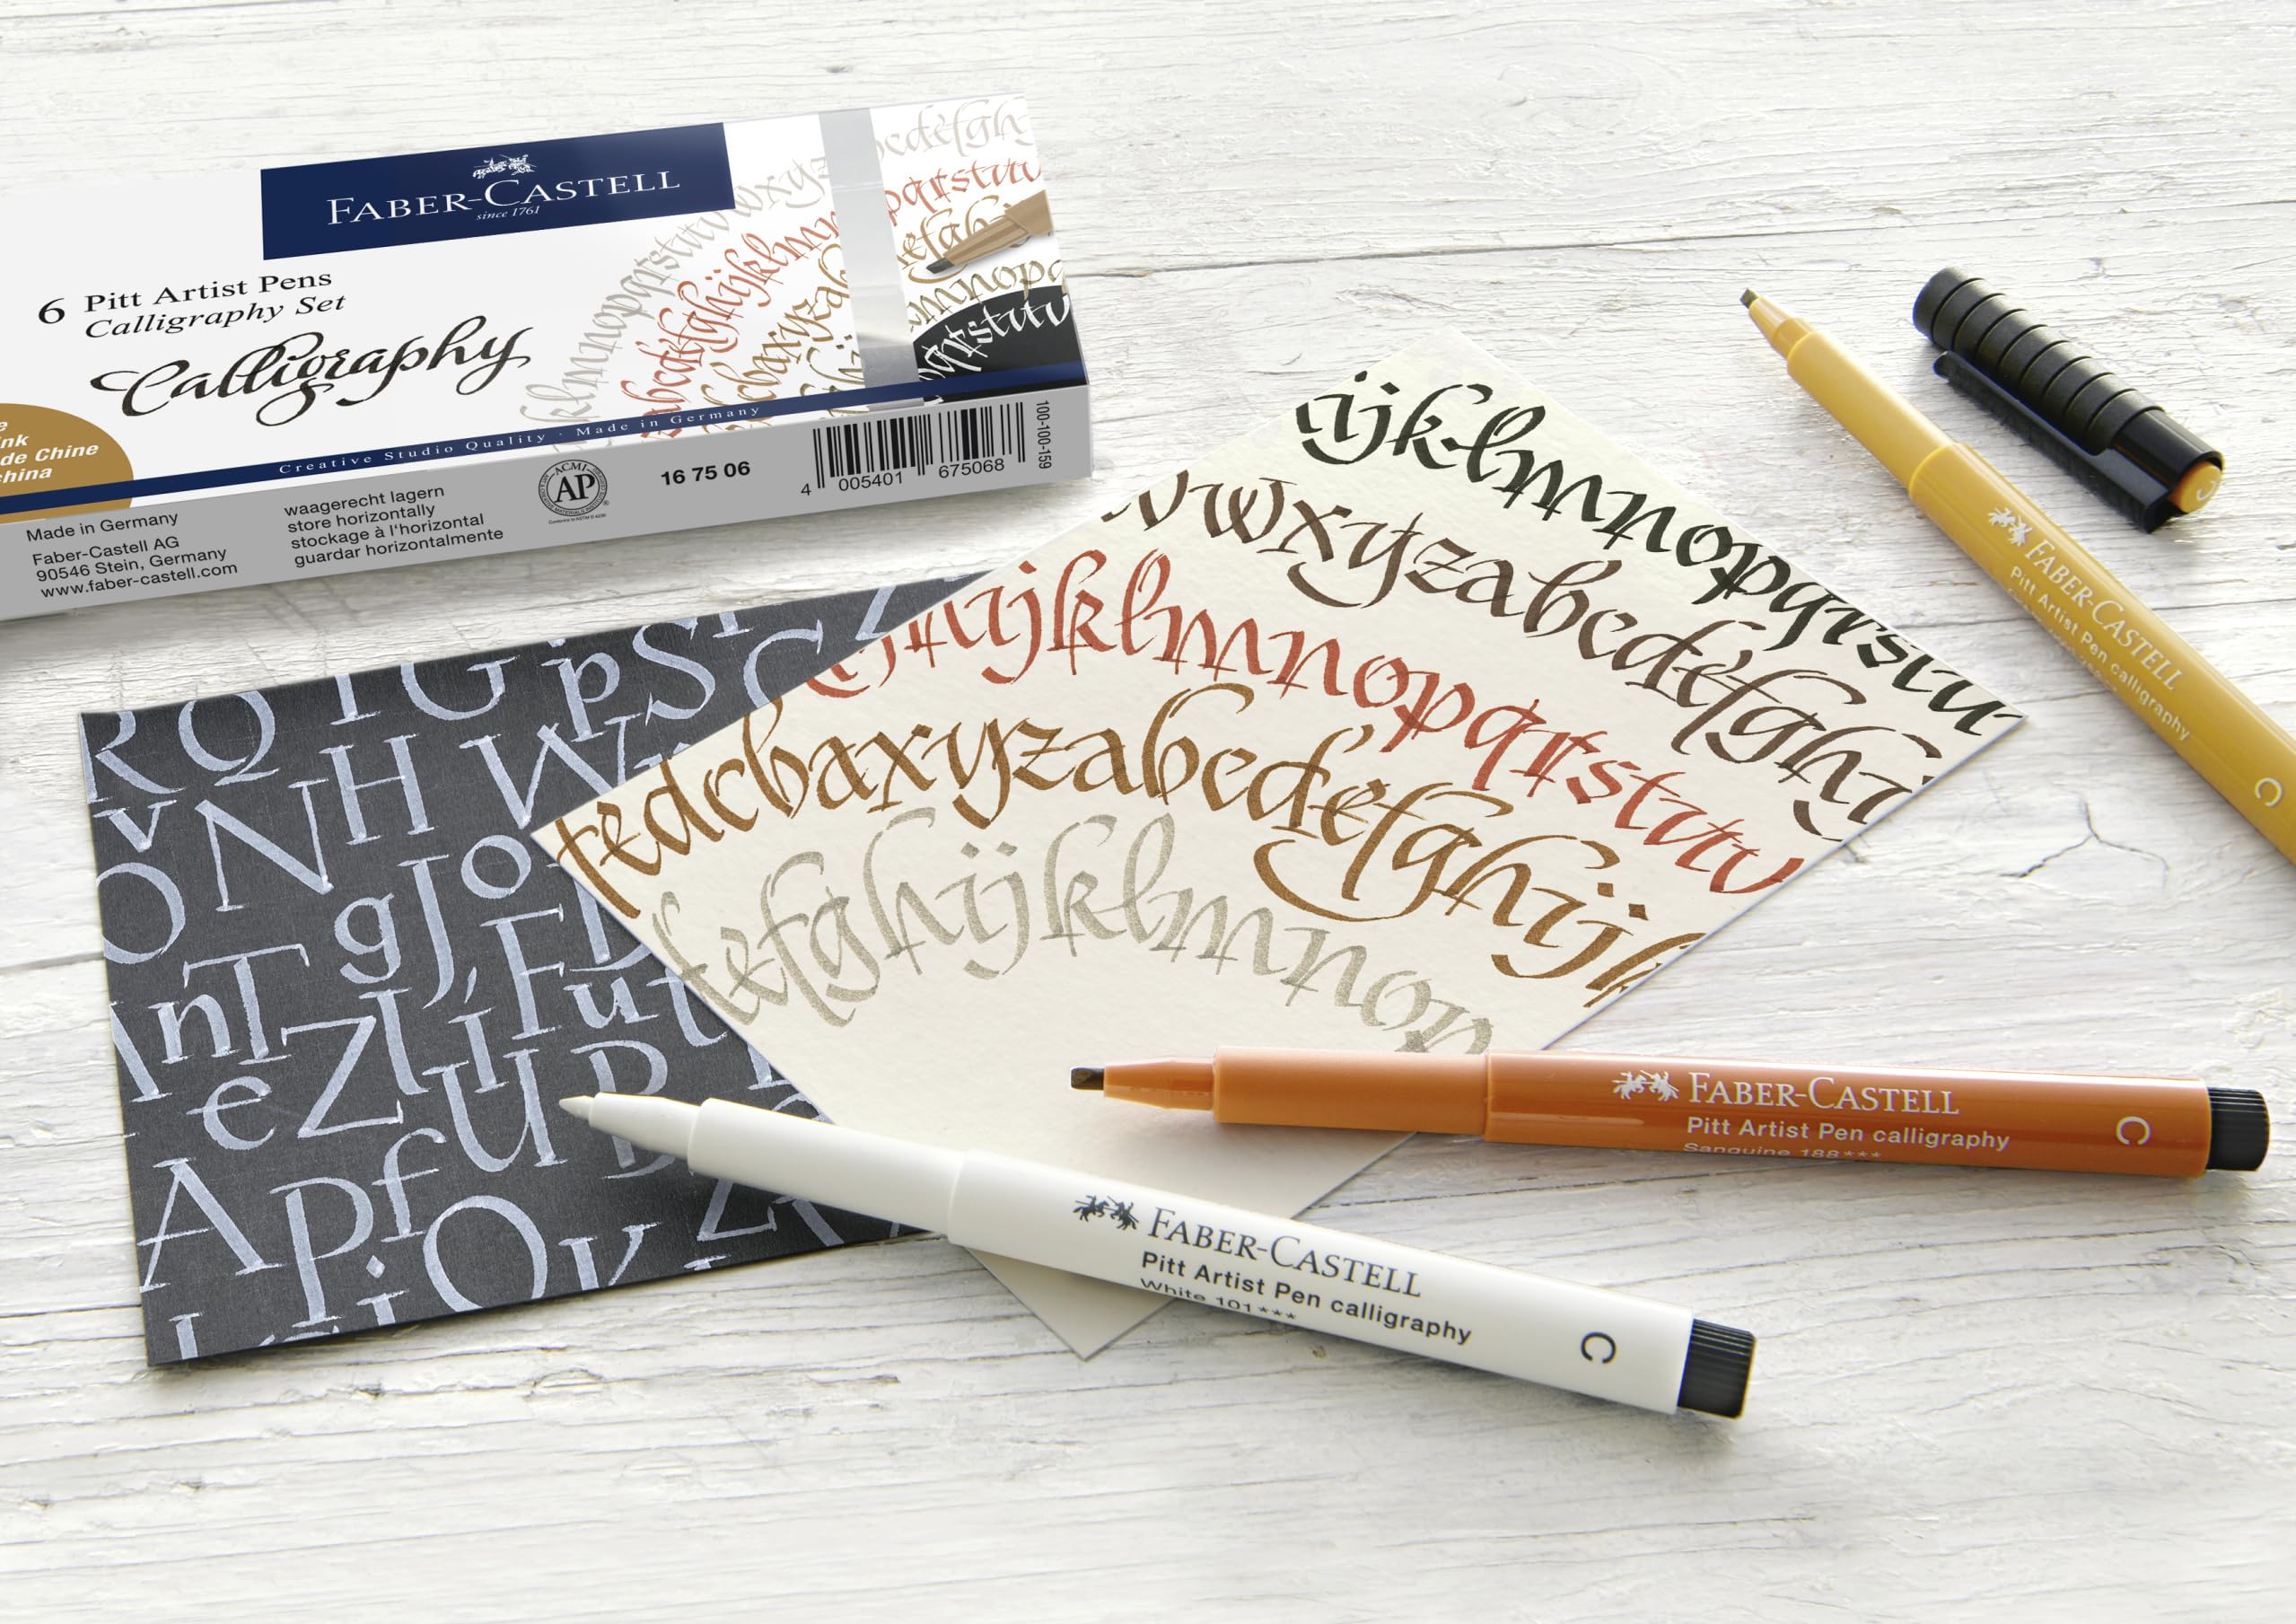 FABER-CASTELL
since 1761
6 Pitt Artist Pens
Calligraphy Set
Calligraphy
de Chine
Creative Studio Quality · Made in Germany
Made in Germany
Faber-Castell AG
90546 Stein, Germany
www.faber-castell.com
waagerecht lagern
store horizontally
stockage à l'horizontal
guardar horizontalmente
ACMI
AP
16 75 06
4 005401 675068
100-100-159
ijklmnopqrstu
vwxyzabcdefghi
hijklmnopqrstuv
fedcbaxyzabcdefghijk
defghijklmnop
R Q T G p S C Z
V N H W
O g J o
n T F u t
e Z l í U B
A p f
i O v
FABER-CASTELL
Pitt Artist Pen calligraphy
C
FABER-CASTELL
Pitt Artist Pen calligraphy
Sanguine 188***
C
FABER-CASTELL
Pitt Artist Pen calligraphy
White 101***
C